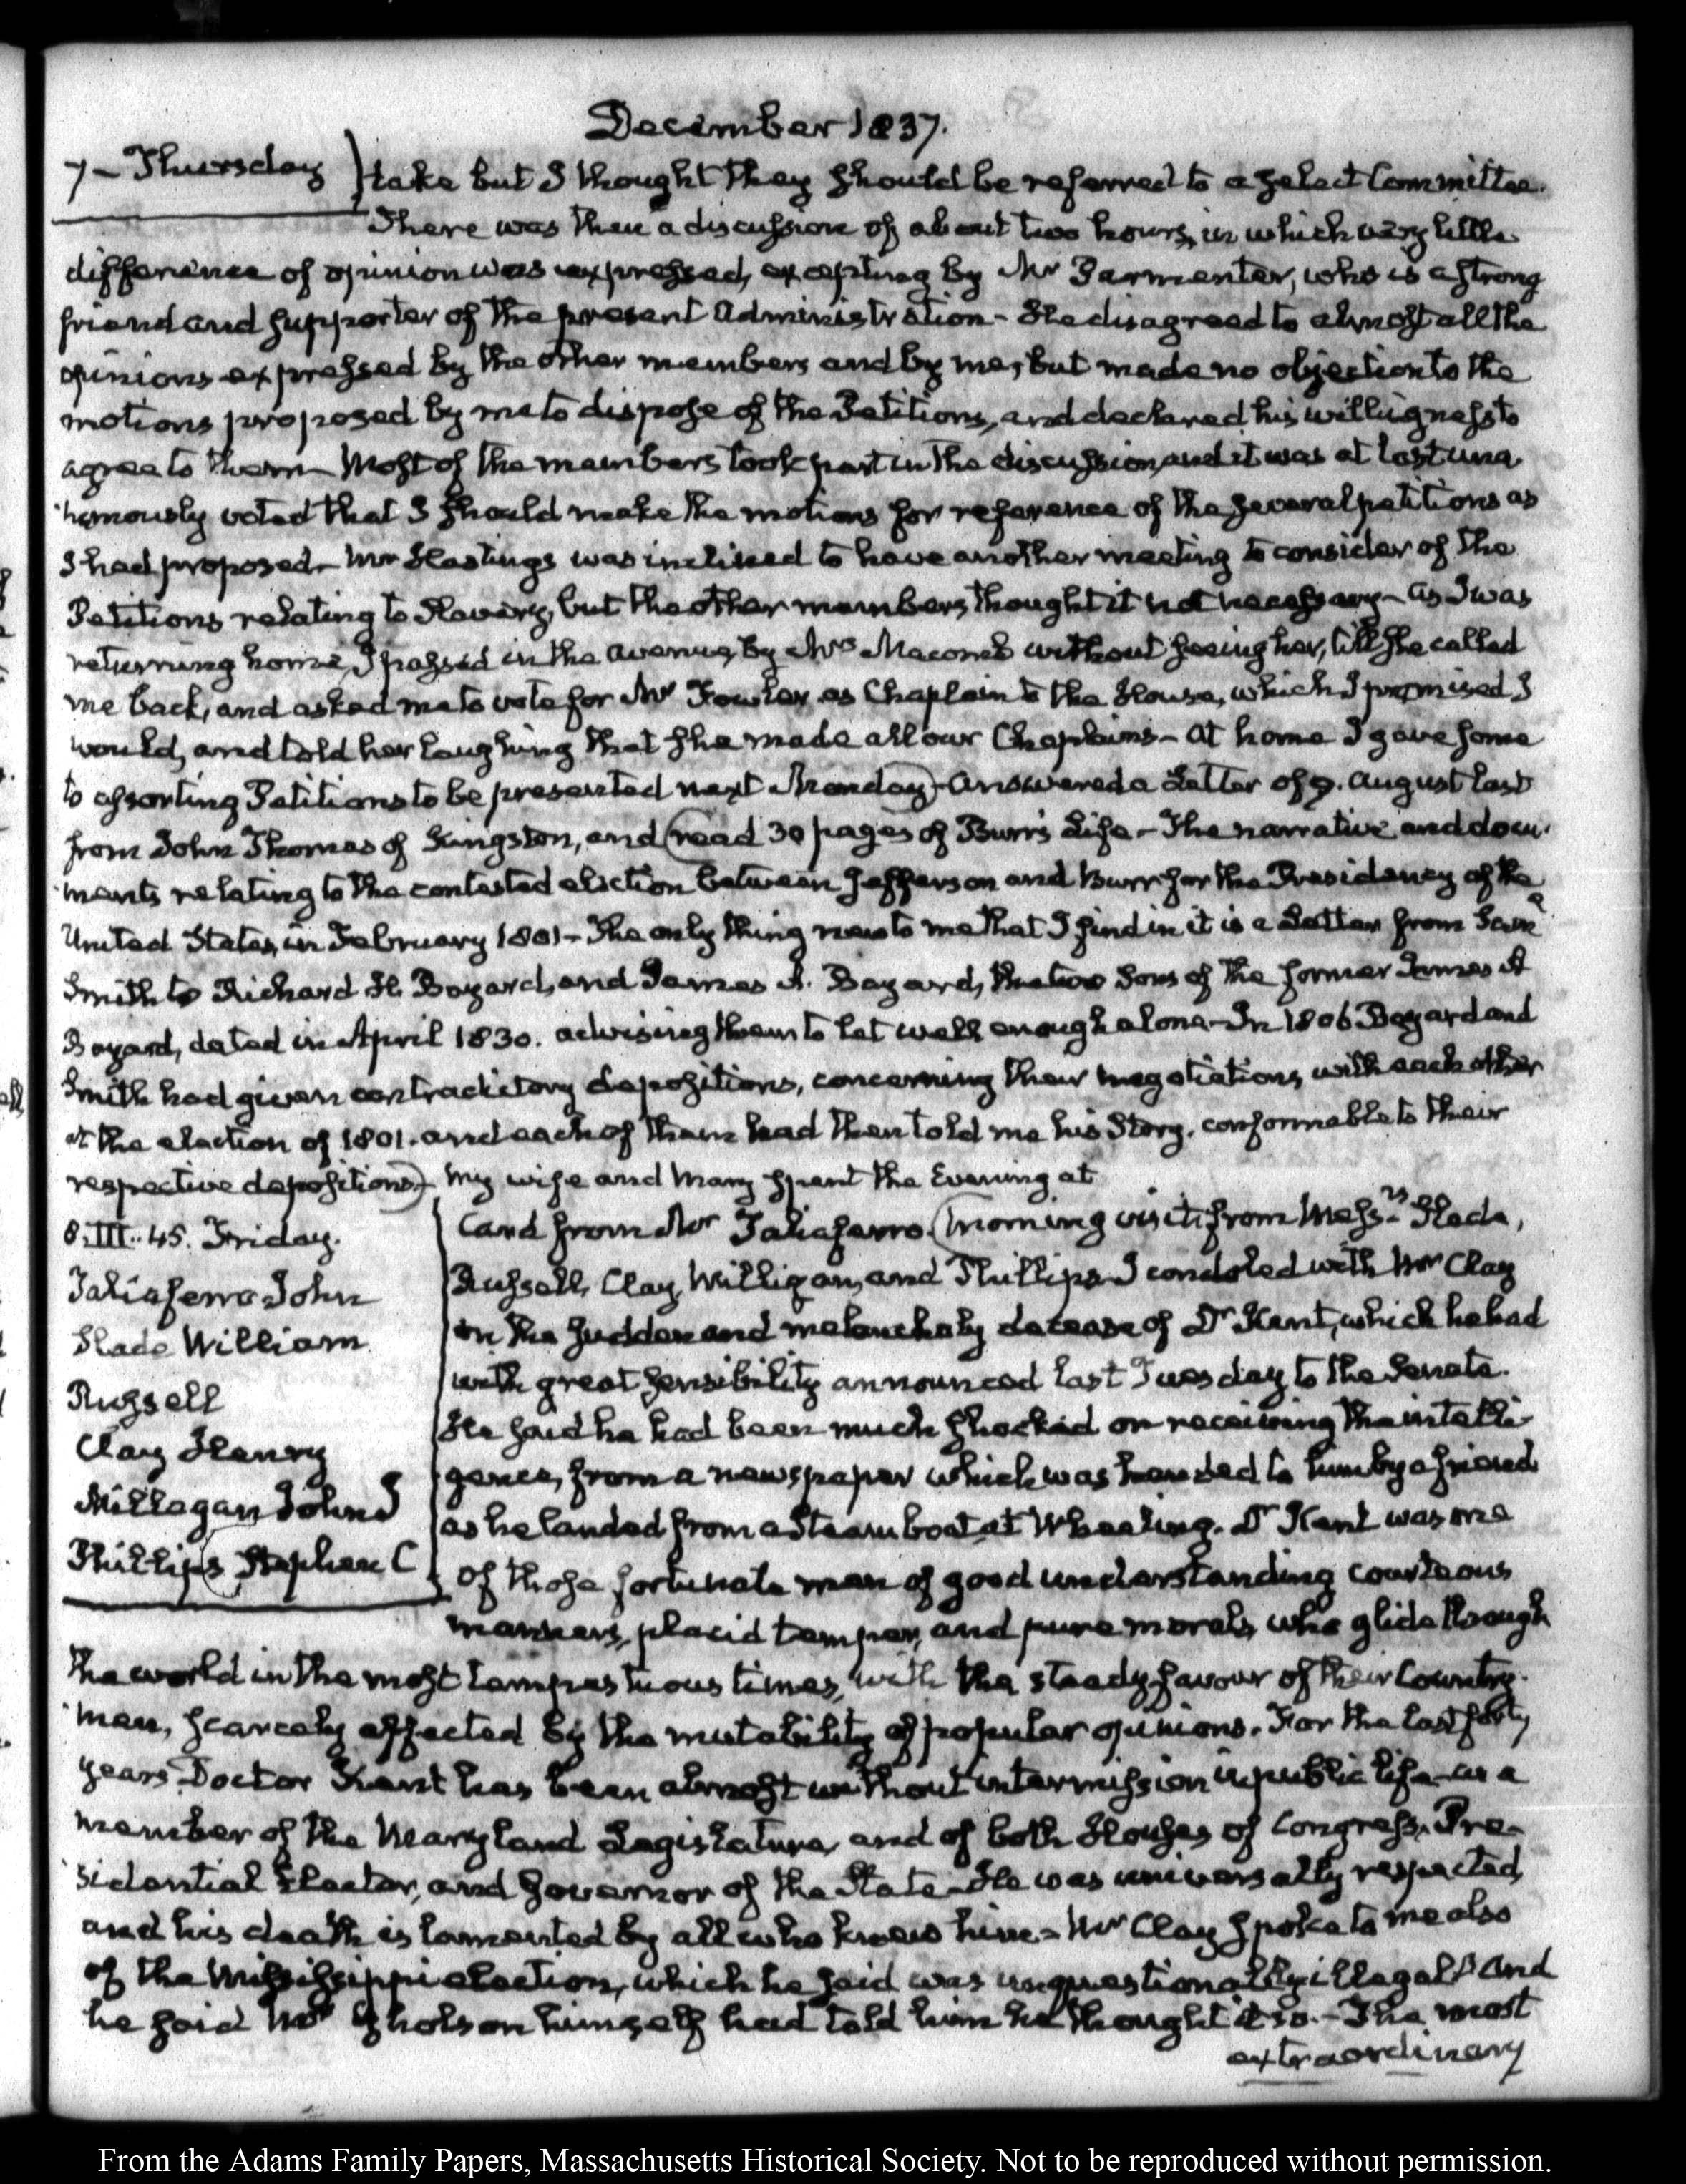 December 1837.
7 - Thursday
take but I thought they should be referred to a select Committee.
There was then a discussion of about two hours, in which very little
difference of opinion was expressed, excepting by Mr Parmenter, who is a strong
friend and supporter of the present Administration - He disagreed to almost all the
opinions expressed by the other members and by me, but made no objection to the
motions proposed by me to dispose of the Petitions, and declared his willingness to
agree to them - Most of the members took part in the discussion, and it was at last una
nimously voted that I should make the motions for reference of the several petitions as
I had proposed - Mr Hastings was inclined to have another meeting to consider of the
Petitions relating to Slavery, but the other members thought it not necessary - As I was
returning home, I passed in the avenue, by Mrs Macomb without seeing her, till she called
me back, and asked me to vote for Mr Fowler as Chaplain to the House, which I promised I
would, and told her laughing that she made all our Chaplains - At home I gave some
to assorting Petitions to be presented next Monday - Answered a Letter of 9. August last
from John Thomas of Kingston, and read 30 pages of Burr's Life - The narrative and docu
ments relating to the contested election between Jefferson and Burr for the Presidency of the
United States, in February 1801 - The only thing new to me that I find in it is a Letter from Saml
Smith to Richard H. Bayard, and James A. Bayard, the two Sons of the former James A
Bayard, dated in April 1830. advising them to let well enough alone - In 1806 Bayard and
Smith had given contradictory depositions, concerning their negotiations with each other
at the election of 1801. and each of them had then told me his Story. conformable to their
respective depositions - My wife and Mary spent the Evening at
8. III. 45. Friday.
Taliaferro John
Slade William
Russell
Clay Henry
Millagan John J
Phillips Stephen C
Card from Mr Taliaferro. Morning visit from Messrs Slade,
Russell, Clay, Milligan, and Phillips - I condoled with Mr Clay
on the sudden and melancholy decease of Dr Kent, which he had
with great sensibility announced last Tuesday to the Senate.
He said he had been much shocked on receiving the intelli
gence, from a newspaper which was handed to him by a friend
as he landed from a Steam boat at Wheeling. Dr Kent was one
of those fortunate men of good understanding courteous
manners, placid temper, and pure morals, who glide through
the world in the most tempestuous times, with the steady favour of their Country
men, scarcely affected by the mutability of popular opinions. For the last forty
years Doctor Kent has been almost without intermission in public life - as a
member of the Maryland Legislature, and of both Houses of Congress, Pre-
sidential Elector, and Governor of the State - He was universally respected
and his death is lamented by all who knew him - Mr Clay spoke to me also
of the Mississippi election, which he said was unquestionably illegal, and
he said Mr Gholson himself had told him he thought it so. - The most
extraordinary
From the Adams Family Papers, Massachusetts Historical Society. Not to be reproduced without permission.